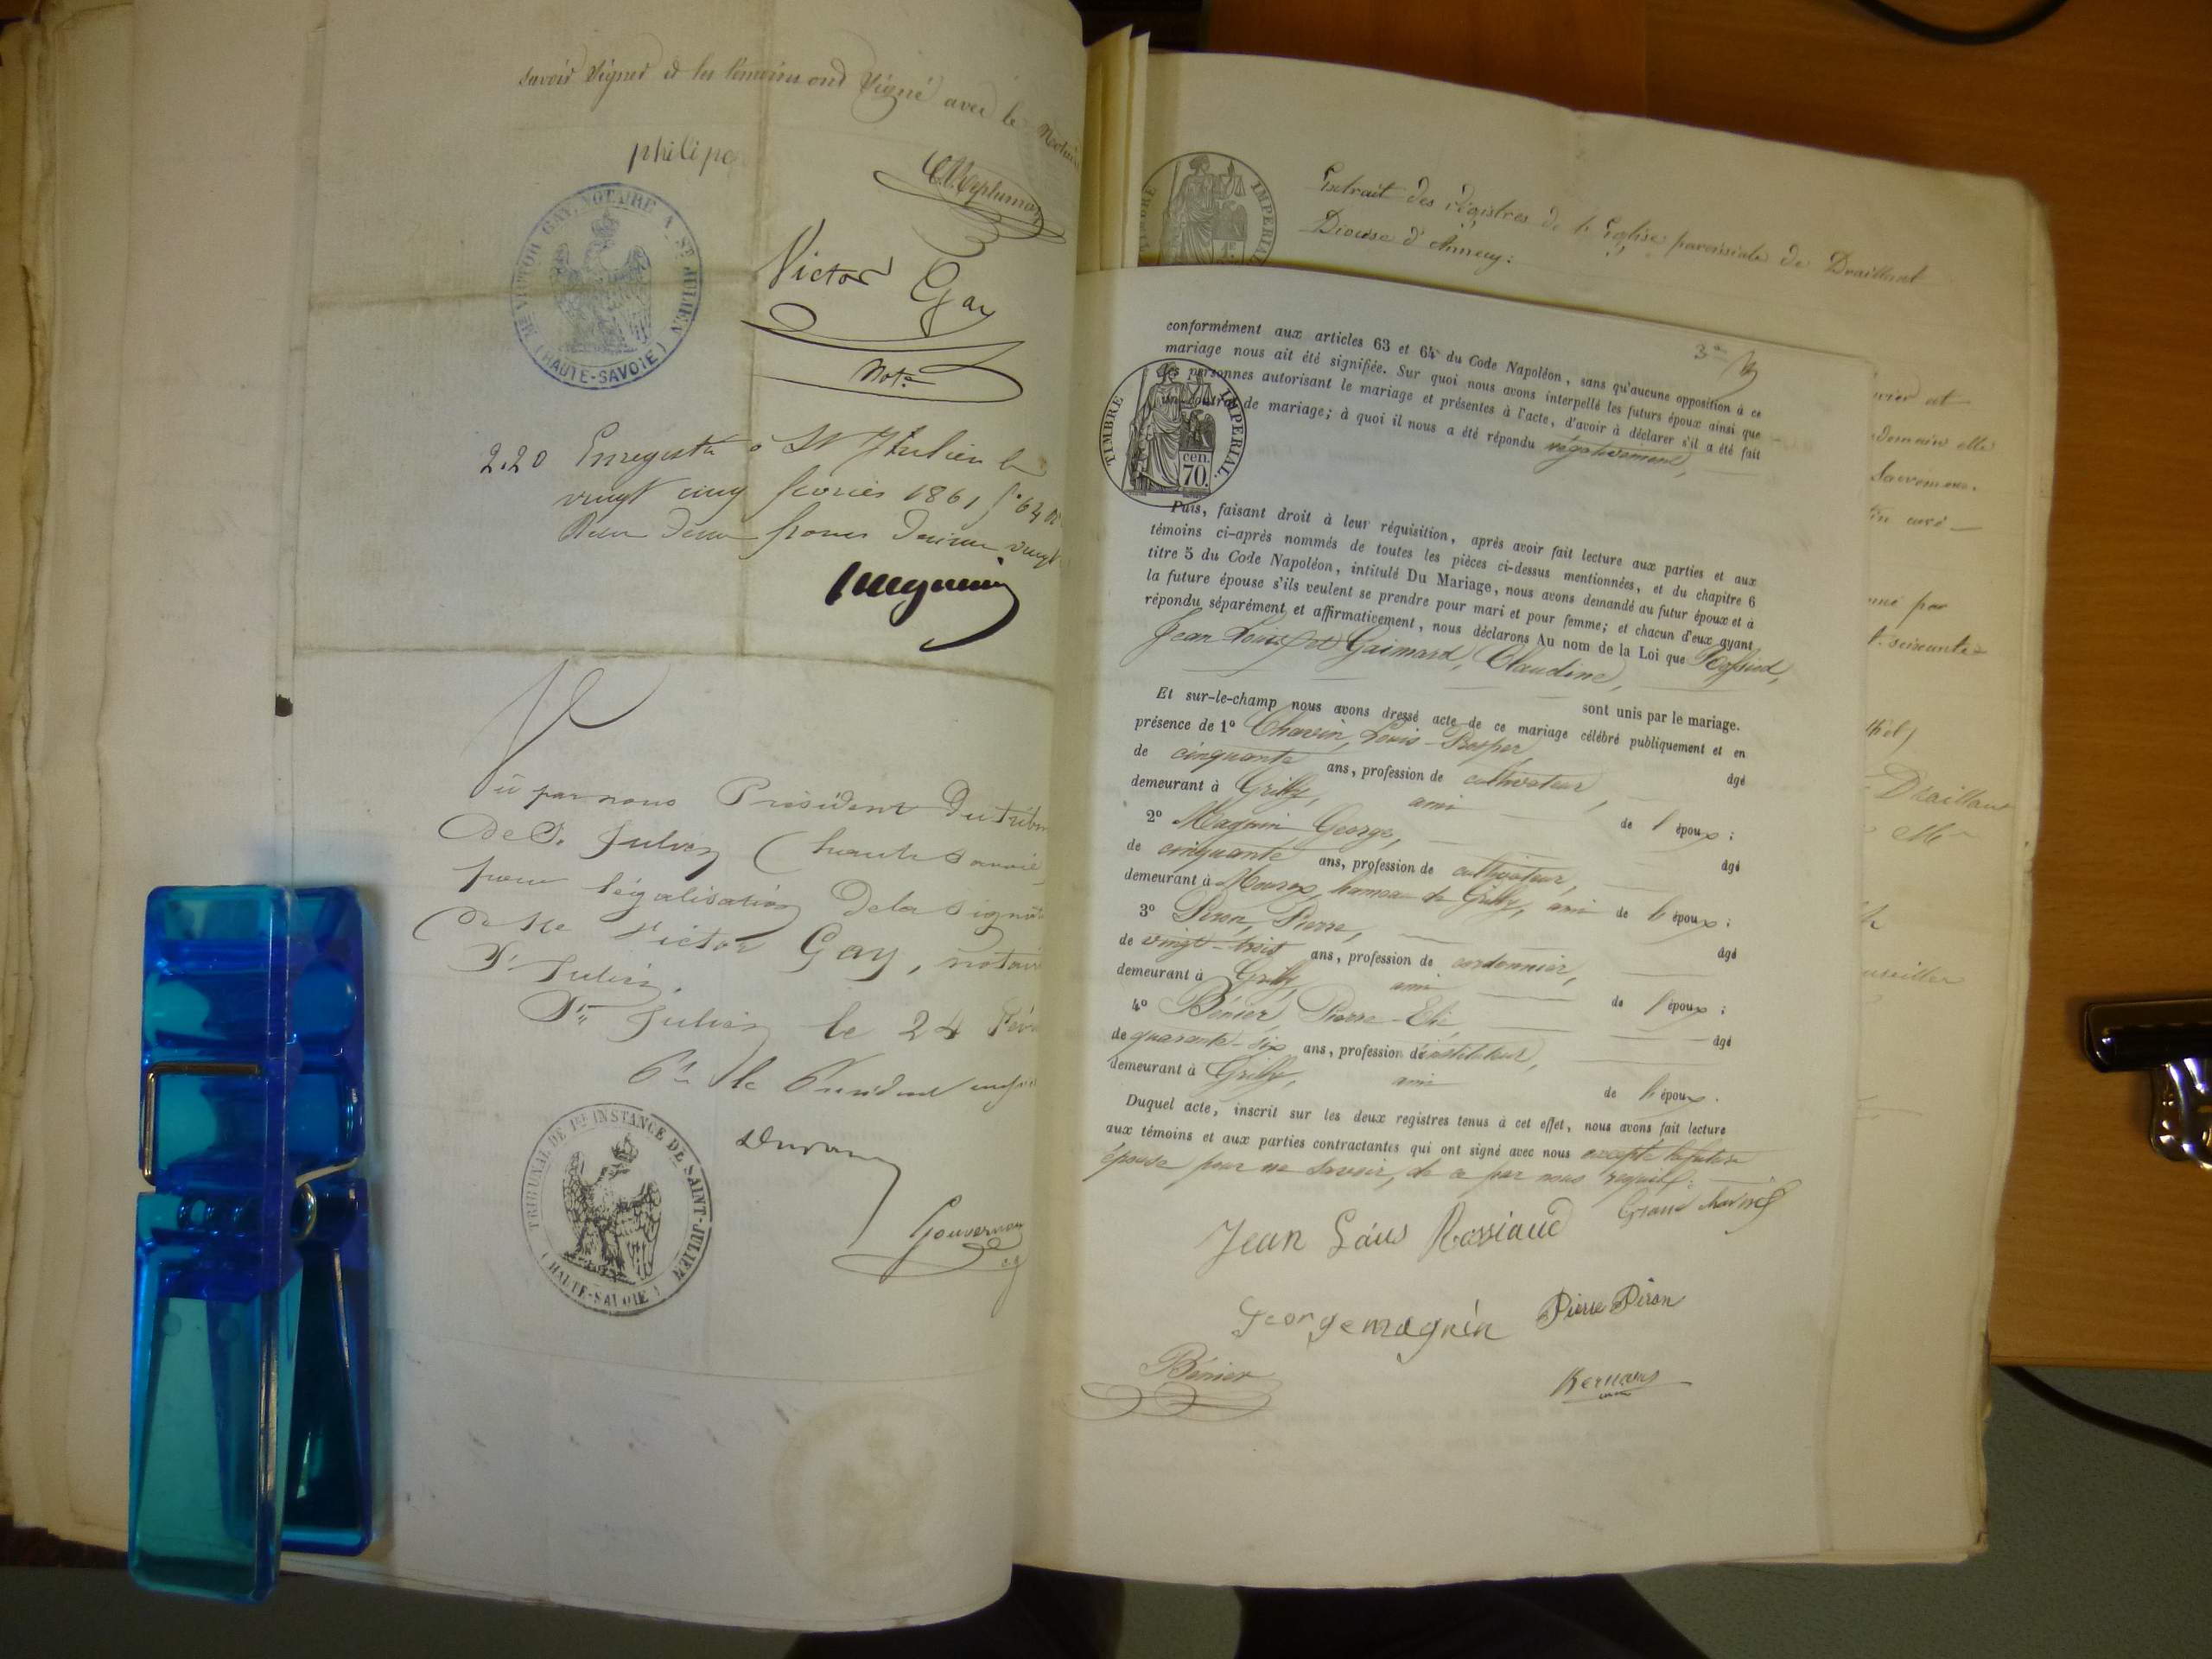 savoir signer et les témoins ont signé avec le Notaire
philipe
Me VICTOR GAY, NOTAIRE A ST JULIEN
(HAUTE-SAVOIE)
Victor Gay
Not.e
2,20 Enregistré à St Julien le
vingt cinq février 1861 f° 64
deux francs décime vingt
Vu par nous Président du tribu
de St Julien (haute Savoie)
pour légalisation de la signa
de Me Victor Gay, notaire
St Julien.
St Julien le 24 Fév
Pr le Président
TRIBUNAL DE 1ERE INSTANCE DE SAINT-JULIEN
(HAUTE-SAVOIE)
Gouvernon
Extrait des régistres de l'Eglise paroissiale de Draillant
Diocèse d'Annecy:
TIMBRE IMPERIAL
3e
conformément aux articles 63 et 64 du Code Napoléon, sans qu'aucune opposition à ce
mariage nous ait été signifiée. Sur quoi nous avons interpellé les futurs époux ainsi que
les personnes autorisant le mariage et présentes à l'acte, d'avoir à déclarer s'il a été fait
un contrat de mariage; à quoi il nous a été répondu négativement,
TIMBRE IMPERIAL
cen.
70.
Puis, faisant droit à leur réquisition, après avoir fait lecture aux parties et aux
témoins ci-après nommés de toutes les pièces ci-dessus mentionnées, et du chapitre 6
titre 5 du Code Napoléon, intitulé Du Mariage, nous avons demandé au futur époux et à
la future épouse s'ils veulent se prendre pour mari et pour femme; et chacun d'eux ayant
répondu séparément et affirmativement, nous déclarons Au nom de la Loi que Rossiaud,
Jean Louis et Gaimard, Claudine,
sont unis par le mariage.
Et sur-le-champ nous avons dressé acte de ce mariage célébré publiquement et en
présence de 1° Chavin, Louis-Prosper âgé
de cinquante ans, profession de cultivateur,
demeurant à Grilly, ami de l'époux;
2° Magnin George, âgé
de cinquante ans, profession de cultivateur,
demeurant à Mourex, hameau de Grilly, ami de l'époux;
3° Piron, Pierre, âgé
de vingt-trois ans, profession de cordonnier,
demeurant à Grilly, ami de l'époux;
4° Bénier, Pierre-Elie, âgé
de quarante-six ans, profession d'instituteur,
demeurant à Grilly, ami de l'époux.
Duquel acte, inscrit sur les deux registres tenus à cet effet, nous avons fait lecture
aux témoins et aux parties contractantes qui ont signé avec nous excepté la future
épouse pour ne savoir, de ce par nous requis.
Jean Loúis Rossiaud
George magnin Pierre Piron
Bénier
nier et
demain elle
Sacremens.
curé
par
t. soixante
Draillant
Me
nseiller